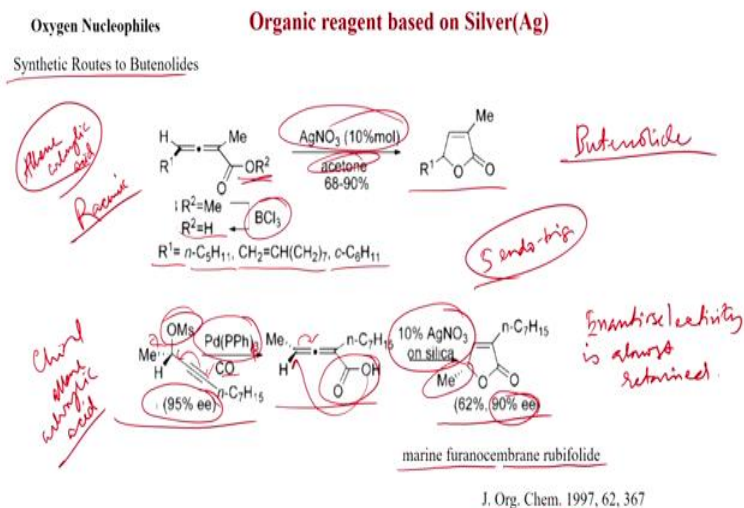 Oxygen Nucleophiles
Organic reagent based on Silver(Ag)
Synthetic Routes to Butenolides
Allene
carboxylic
acid
Racemic
H
R¹
Me
OR²
O
AgNO₃ (10%mol)
acetone
68-90%
Me
R¹
O
O
Butenolide
R²=Me
R²=H
BCl₃
R¹= n-C₅H₁₁, CH₂=CH(CH₂)₇, c-C₆H₁₁
5 endo-trig
Chiral
allene
carboxylic
acid
OMs
Me
H
n-C₇H₁₅
(95% ee)
Pd(PPh)
CO
Me
H
n-C₇H₁₅
OH
O
10% AgNO₃
on silica
n-C₇H₁₅
Me
O
O
(62%, 90% ee)
Enantioselectivity
is almost
retained.
marine furanocembrane rubifolide
J. Org. Chem. 1997, 62, 367